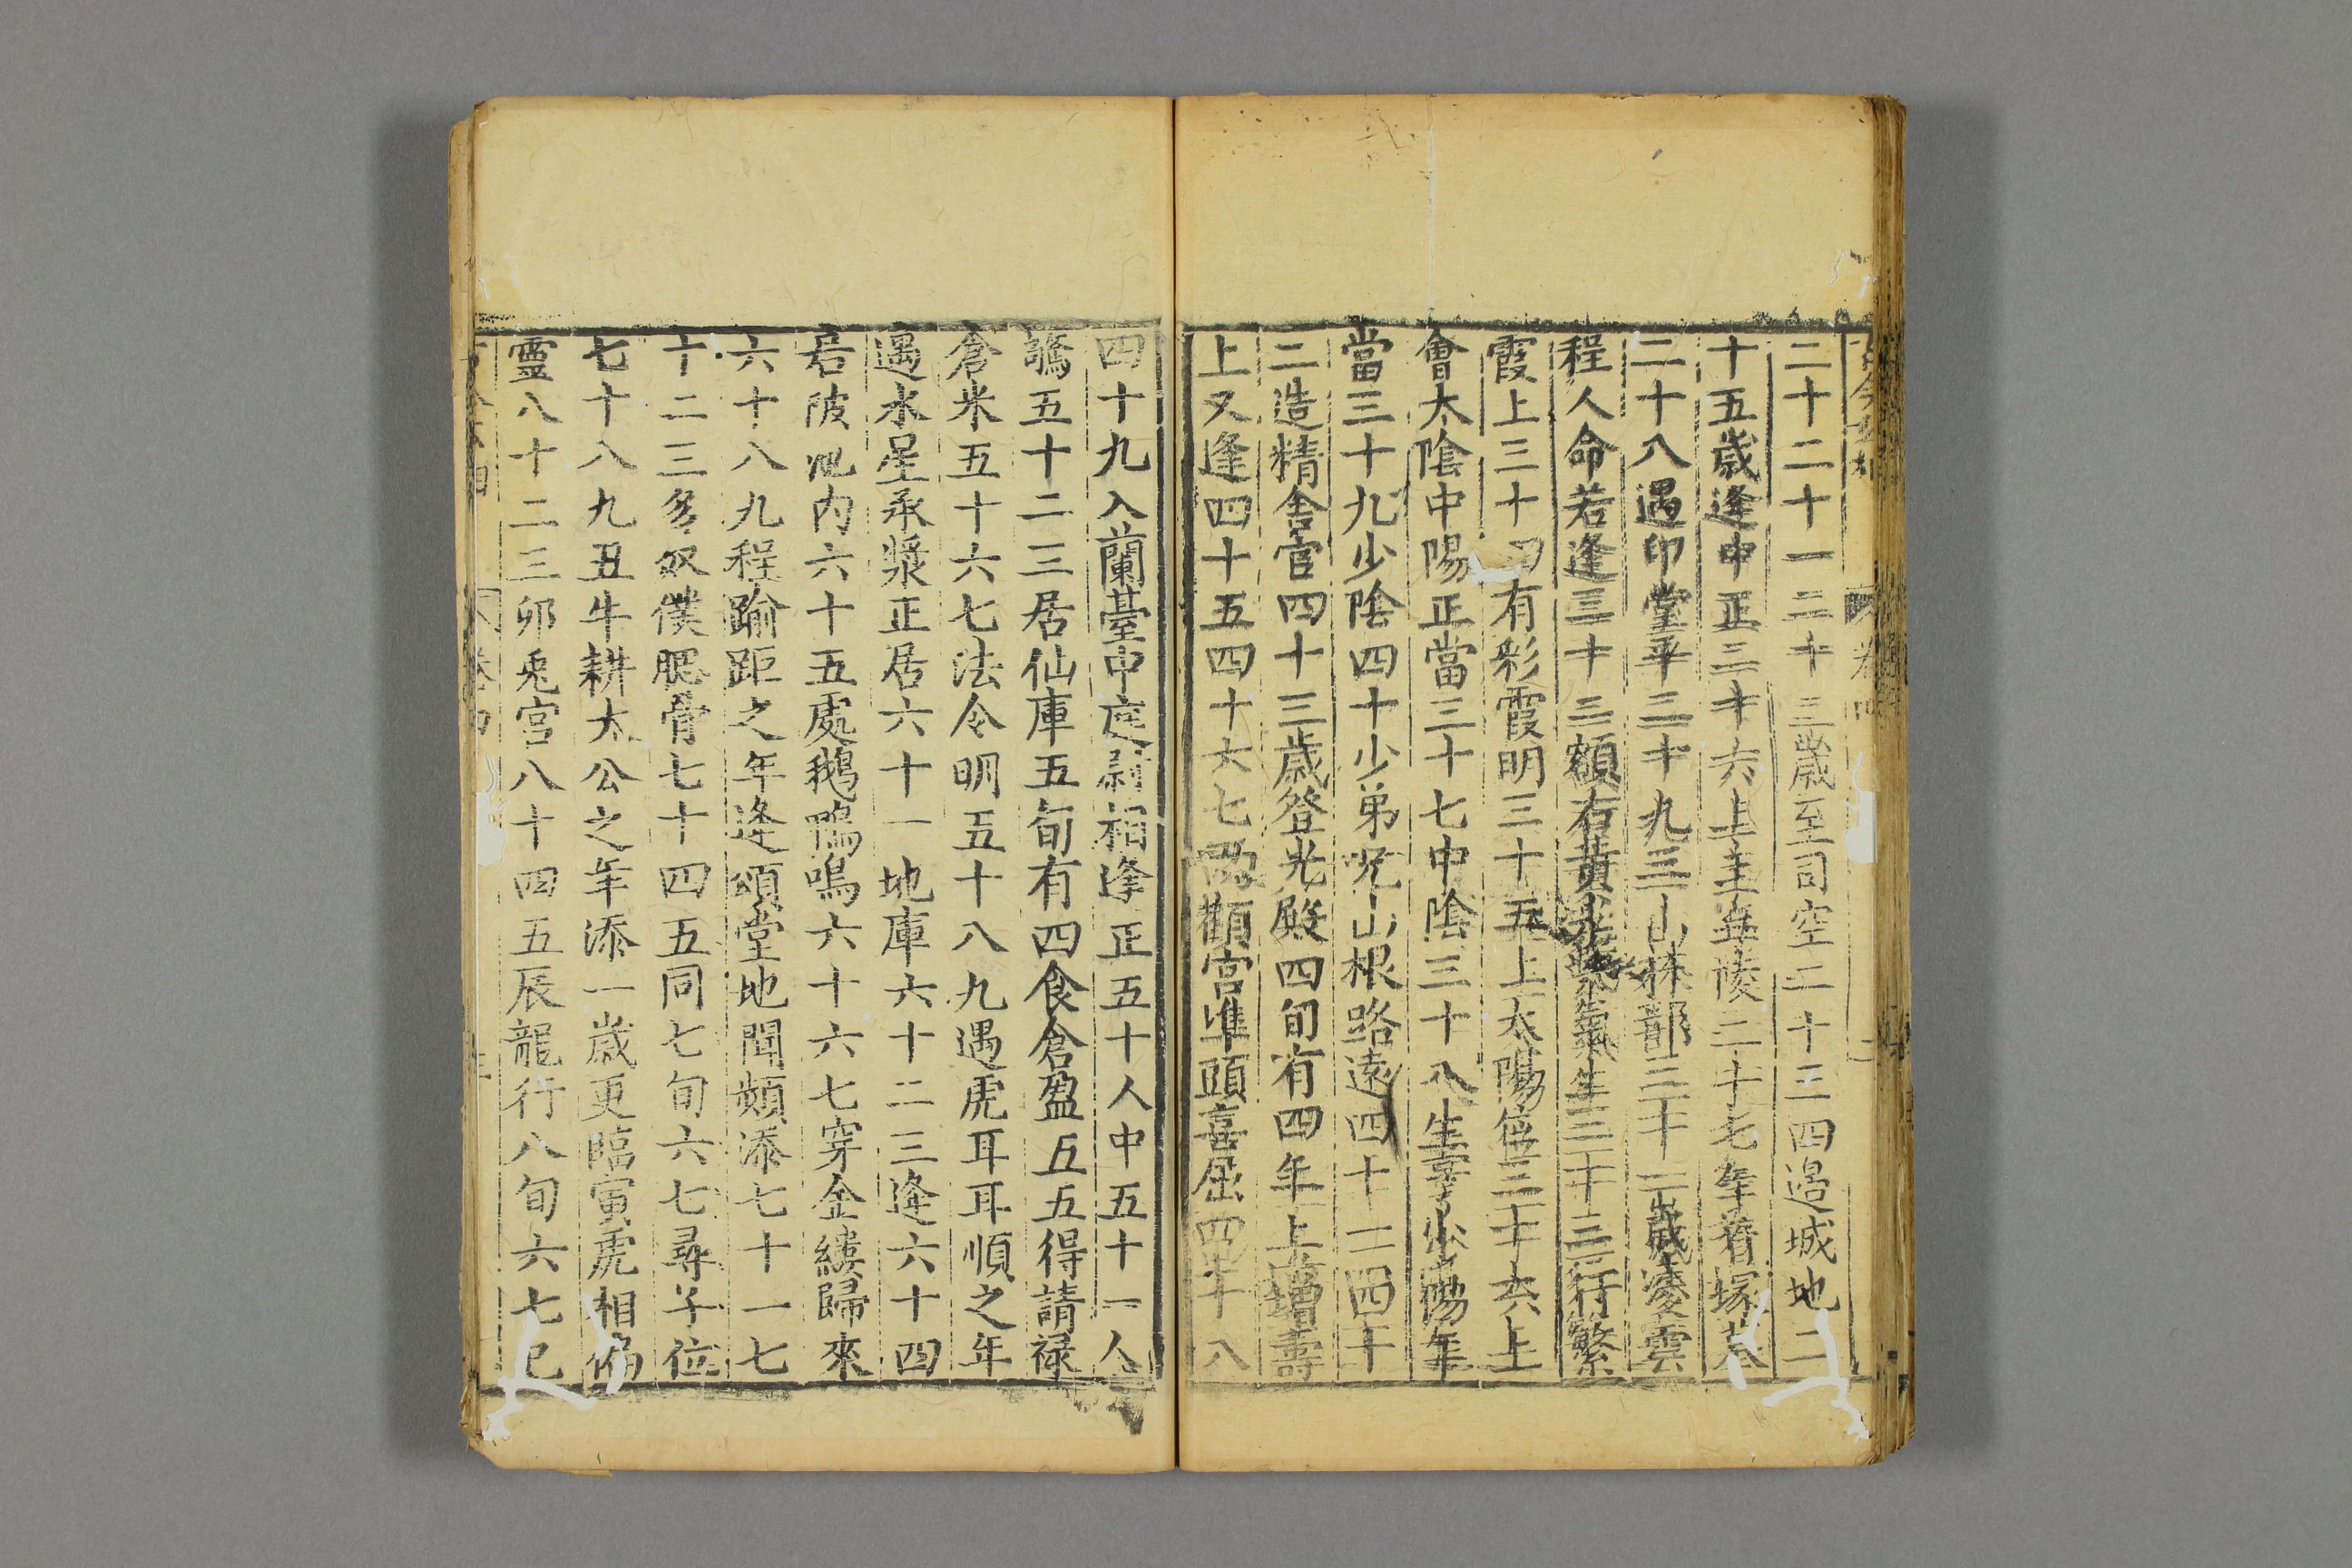 二十二十一二十三歲至司空二十三四邉城地二
十五歲逢中正二十六上主丘陵二十七年看塚墓
二十八遇印堂平二十九三山林部三十二歲凌雲
程人命若逢三十三額右黃光紫氣生三十三行繁
霞上三十四有彩霞明三十五上太陽位三十六上
會太陰中陽正當三十七中陰三十八生享少陽年
當三十九少陰四十少弟兄山根路遠四十一四十
二造精舍宮四十三歲登光殿四旬有四年上增壽
上又逢四十五四十六七兩顴宮準頭喜屈四十八
四十九入蘭臺中廷尉相逢正五十人中五十一人
驚五十二三居仙庫五旬有四食倉盈五五得請禄
倉米五十六七法令明五十八九遇虎耳耳順之年
遇水星承漿正居六十一地庫六十二三逢六十四
居陂池内六十五處鵝鴨鳴六十六七穿金縷歸來
六十八九程踰距之年逢頌堂地閣頻添七十一七
十二三多奴僕腮骨七十四五同七旬六七尋子位
七十八九丑牛耕太公之年添一歲更臨寅虎相偏
靈八十二三卯兎宮八十四五辰龍行八旬六七巳